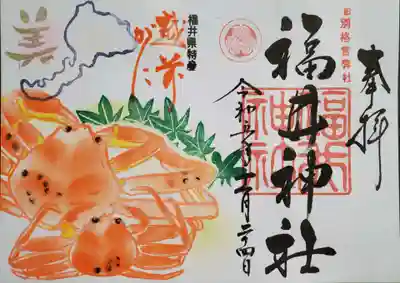 奉拝
旧別格官幣社
福井神社
福井神社
令和五年十二月二十四日
福井県特産
越前がに
美